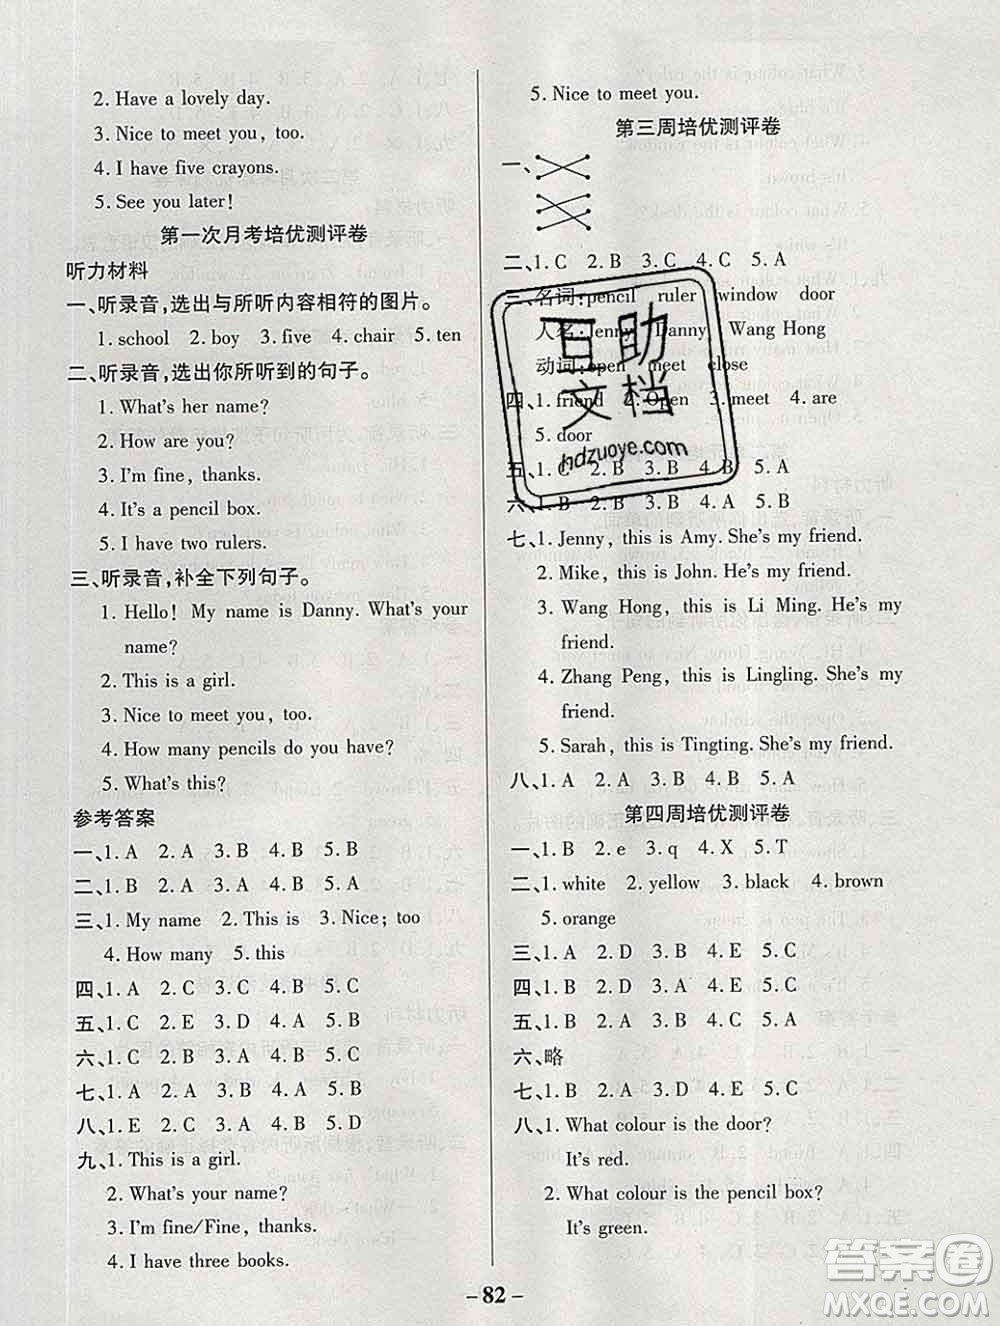 2. Have a lovely day.
3. Nice to meet you, too.
4. I have five crayons.
5. See you later!
第一次月考培优测评卷
听力材料
一、听录音,选出与所听内容相符的图片。
1. school 2. boy 3. five 4. chair 5. ten
二、听录音,选出你所听到的句子。
1. What's her name?
2. How are you?
3. I'm fine, thanks.
4. It's a pencil box.
5. I have two rulers.
三、听录音,补全下列句子。
1. Hello! My name is Danny. What's your
name?
2. This is a girl.
3. Nice to meet you, too.
4. How many pencils do you have?
5. What's this?
参考答案
一、1. A 2. A 3. B 4. B 5. B
二、1. B 2. A 3. B 4. B 5. A
三、1. My name 2. This is 3. Nice; too
4. How many 5. this
四、1. A 2. C 3. C 4. B 5. B
五、1. C 2. E 3. D 4. A 5. B
六、1. C 2. B 3. A 4. B 5. C
七、1. A 2. A 3. C 4. B 5. C
八、1. E 2. C 3. A 4. B 5. D
九、1. This is a girl.
2. What's your name?
3. I'm fine/Fine, thanks.
4. I have three books.
5. Nice to meet you.
第三周培优测评卷
一、
二、1. C 2. B 3. C 4. C 5. A
三、名词:pencil ruler window door
人名:Jenny Danny Wang Hong
动词:open meet close
四、1. friend 2. Open 3. meet 4. are
5. door
五、1. C 2. B 3. B 4. B 5. A
六、1. B 2. B 3. A 4. B 5. A
七、1. Jenny, this is Amy. She's my friend.
2. Mike, this is John. He's my friend.
3. Wang Hong, this is Li Ming. He's my
friend.
4. Zhang Peng, this is Lingling. She's my
friend.
5. Sarah, this is Tingting. She's my friend.
八、1. A 2. A 3. B 4. B 5. A
第四周培优测评卷
一、1. B 2. e 3. q 4. X 5. T
二、1. white 2. yellow 3. black 4. brown
5. orange
三、1. A 2. D 3. B 4. E 5. C
四、1. A 2. B 3. A 4. B 5. C
五、1. B 2. A 3. C 4. B 5. A
六、略
七、1. B 2. A 3. B 4. A 5. B
八、1. What colour is the door?
It's red.
2. What colour is the pencil box?
It's green.
- 82 -
互助
文档
hdzuoye.com
答案圈
MXQE.COM